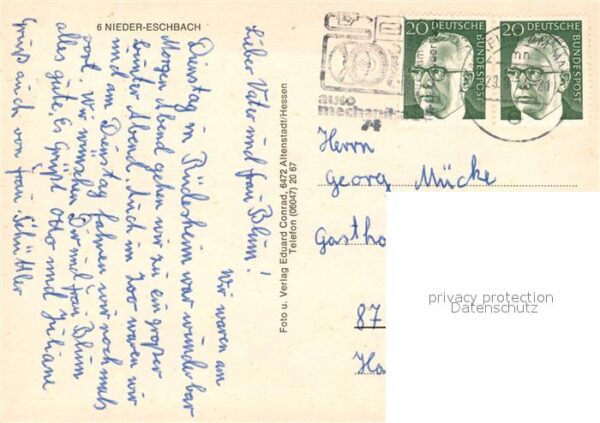 6 NIEDER-ESCHBACH
Lieber Vater und Frau Blum!
Wir waren am
Dienstag in Rüdesheim war wunderbar
Morgen Abend gehen wir zu ein großer
bunter Abend. Auch in Zoo waren wir
und am Dienstag fahren wir noch mals
fort. Wir wünschen Dir und Frau Blum
alles gute. Es Grüßt Otto und Juliane
Gruß auch von Frau Schüttler
Foto u. Verlag Eduard Conrad, 6472 Altenstadt/Hessen
Telefon (06047) 20 67
auto
mechanika
74
20 DEUTSCHE BUNDESPOST
20 DEUTSCHE BUNDESPOST
Herrn
Georg Mücke
Gastho
87
Ha
privacy protection
Datenschutz